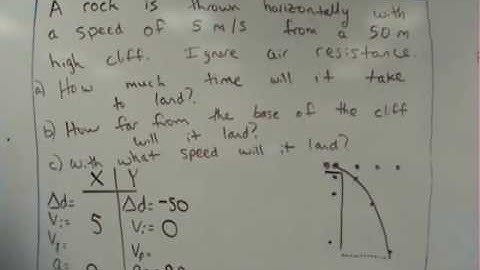 A rock is thrown horizontally with
a speed of 5 m/s from a 50 m
high cliff. Ignore air resistance.
a) How much time will it take
to land?
b) How far from the base of the cliff
will it land?
c) with what speed will it land?
X Y
Δd= Δd= -50
Vi= 5 Vi= 0
Vf= Vf=
a= a=